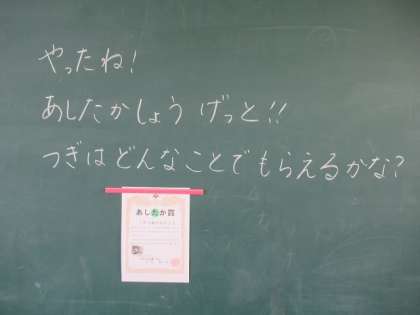 やったね!
あしたかしょう げっと!!
つぎは どんなことで もらえるかな?
あしたか賞